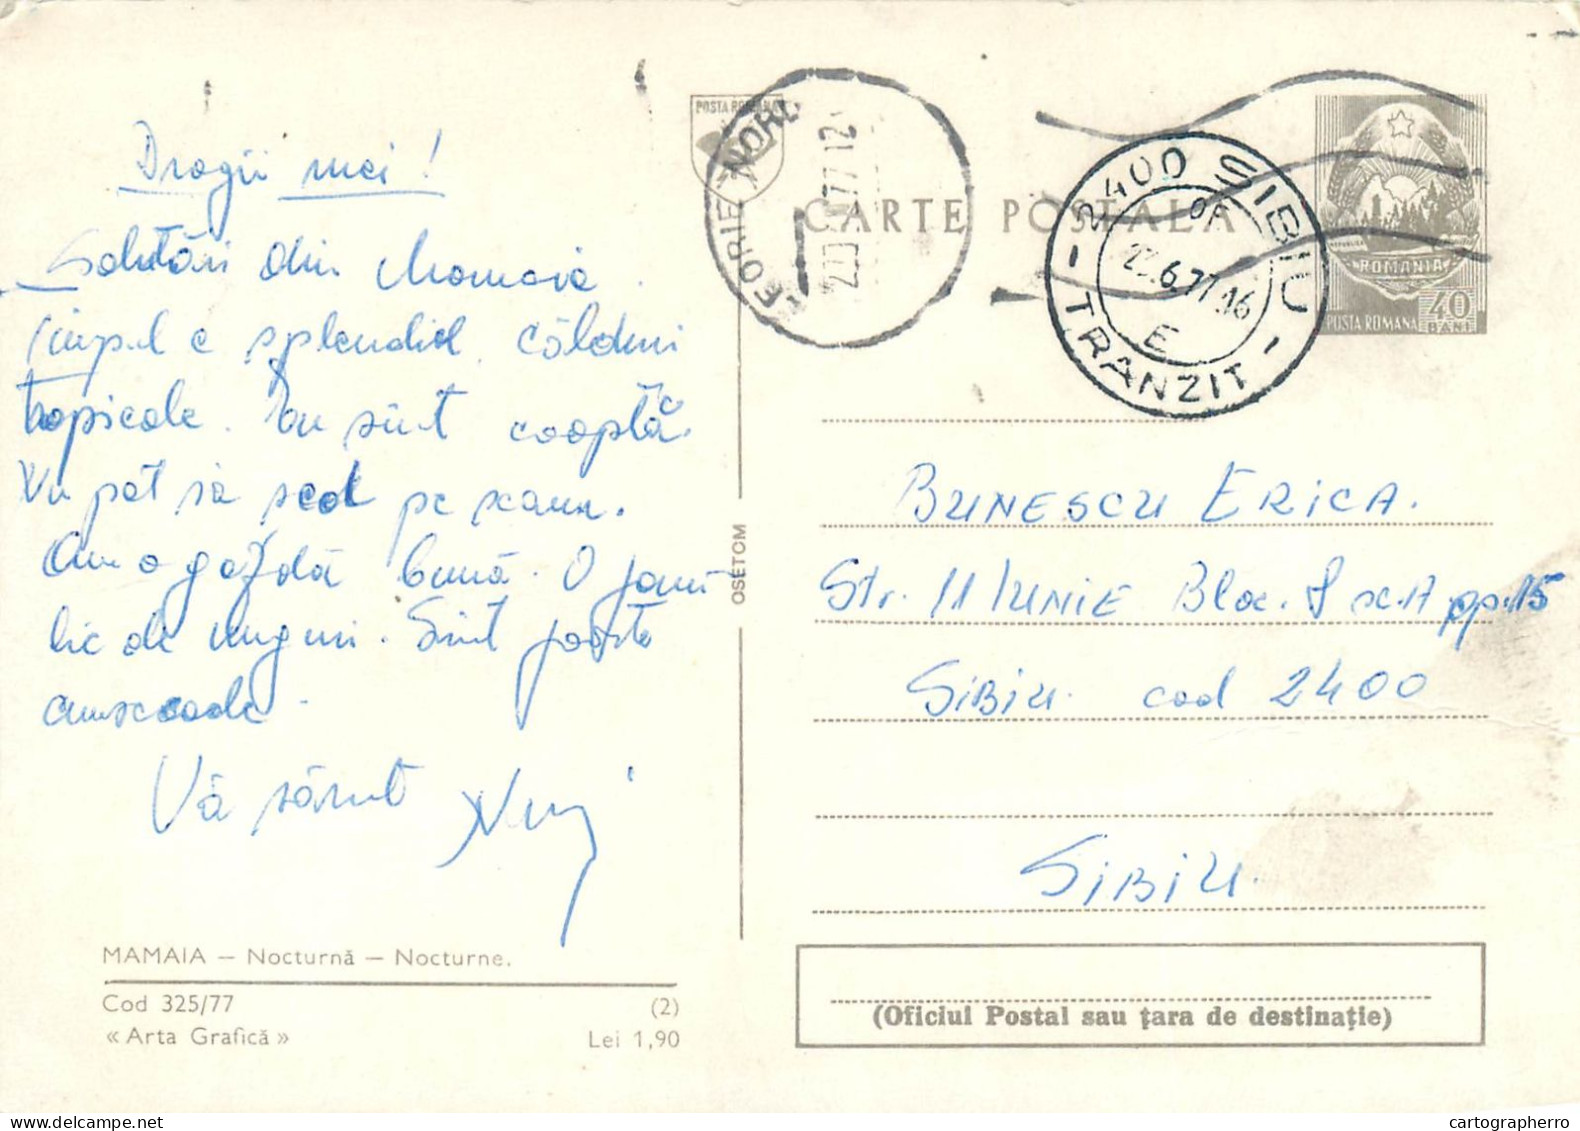 Dragii mei!
Salutări din Mamaia.
Timpul e splendid. călduri
tropicale. Eu sînt cooptă.
Nu pot să șed pe scaun.
Am o gazdă bună. O fami
lie de unguri. Sînt foarte
cumsecade.
Vă sărut
MAMAIA — Nocturnă — Nocturne.
Cod 325/77 (2)
« Arta Grafică » Lei 1,90
OSETCM
POSTA ROMANA
EFORIE NORD
77 12
CARTE POSTALA
2400 SIBIU
OF
22.6.77.16
E
— TRANZIT —
ROMANIA
POSTA ROMANA 40 BANI
BUNESCU ERICA.
Str. 11 IUNIE Bloc. 8 sc.A ap.15
SIBIU. cod 2400
SIBIU.
(Oficiul Postal sau țara de destinație)
delcampe.net
cartographerro